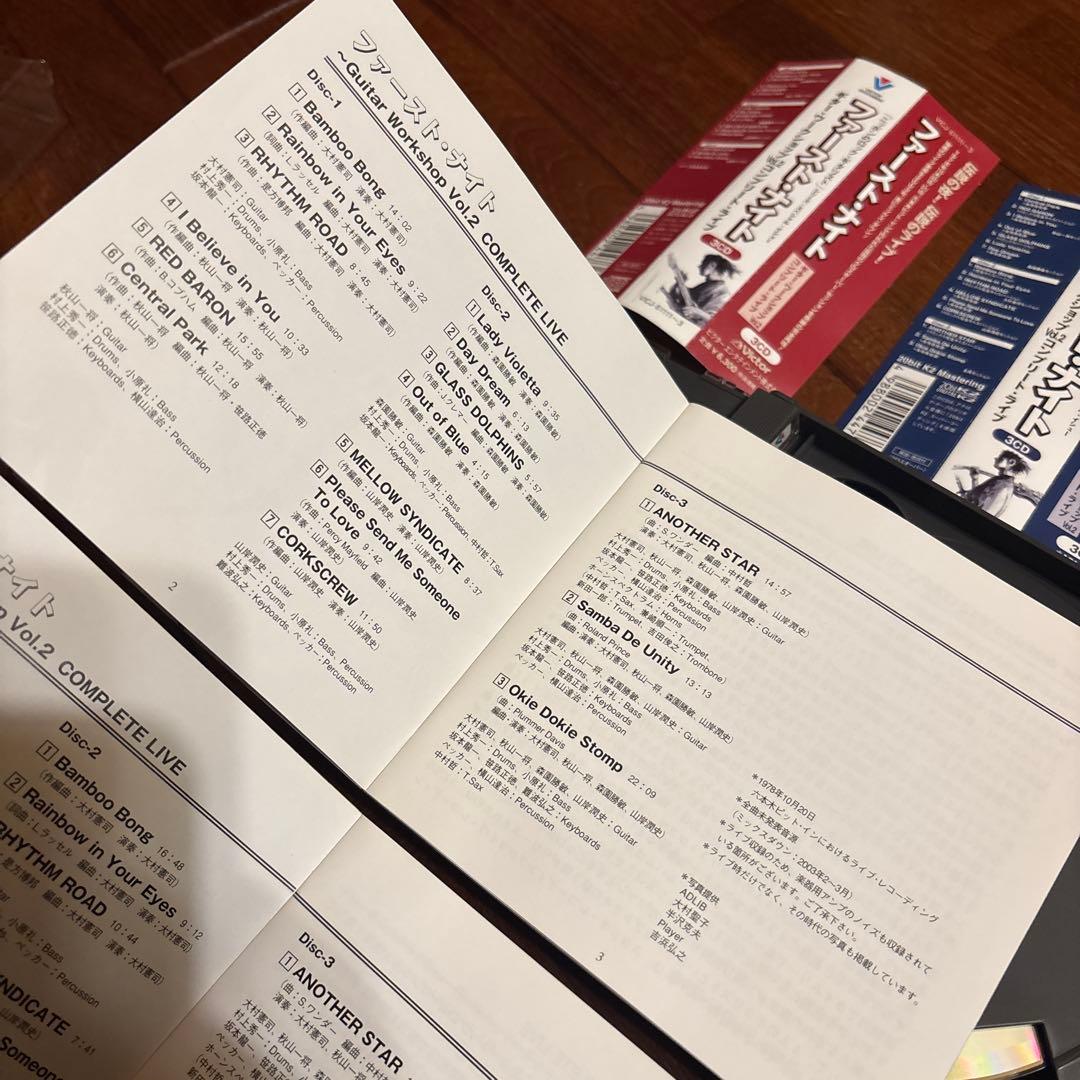 ファースト・ナイト
~Guitar Workshop Vol.2 COMPLETE LIVE
Disc-1
1 Bamboo Bong 14:02
(作編曲：大村憲司 演奏：大村憲司)
2 Rainbow in Your Eyes 9:22
(詞曲：L.ラッセル 編曲：大村憲司 演奏：大村憲司)
3 RHYTHM ROAD 8:45
(作曲：是方博邦 編曲：大村憲司 演奏：大村憲司)
大村憲司：Guitar
村上秀一：Drums、小原礼：Bass
坂本龍一：Keyboards、ペッカー：Percussion
4 I Believe in You 10:33
(作編曲：秋山一将 演奏：秋山一将)
5 RED BARON 15:55
(作曲：B.コブハム 編曲：秋山一将 演奏：秋山一将)
6 Central Park 12:18
(作曲：秋山一将 編曲：秋山一将、笹路正徳
演奏：秋山一将)
秋山一将：Guitar
村上秀一：Drums、小原礼：Bass
笹路正徳：Keyboards、横山達治：Percussion
Disc-2
1 Lady Violetta 9:35
(作編曲：森園勝敏 演奏：森園勝敏)
2 Day Dream 6:13
(作編曲：森園勝敏 演奏：森園勝敏)
3 GLASS DOLPHINS 5:57
(作曲：J.クレア 編曲：森園勝敏 演奏：森園勝敏)
4 Out of Blue 4:15
(作編曲：森園勝敏 演奏：森園勝敏)
森園勝敏：Guitar
村上秀一：Drums、小原礼：Bass
坂本龍一：Keyboards、ペッカー：Percussion、中村哲：T.Sax
5 MELLOW SYNDICATE 8:37
(作編曲：山岸潤史 演奏：山岸潤史)
6 Please Send Me Someone
To Love 9:42
(作曲：Percy Mayfield 編曲：山岸潤史
演奏：山岸潤史)
7 CORKSCREW 11:50
(作編曲：山岸潤史 演奏：山岸潤史)
山岸潤史：Guitar
村上秀一：Drums、小原礼：Bass、Percussion
難波弘之：Keyboards、ペッカー：Percussion
2
Disc-3
1 ANOTHER STAR 14:57
(曲：S.ワンダー 編曲：中村哲
演奏：大村憲司、秋山一将、森園勝敏、山岸潤史)
大村憲司、秋山一将、森園勝敏、山岸潤史：Guitar
村上秀一：Drums、小原礼：Bass
坂本龍一、笹路正徳：Keyboards
ペッカー、横山達治：Percussion
ホーンスペクトラム：Horns
(中村哲：T.Sax、兼崎順一：Trumpet、
新田一郎：Trumpet、吉田俊之：Trombone)
2 Samba De Unity 13:13
(曲：Roland Prince
編曲・演奏：大村憲司、秋山一将、森園勝敏、山岸潤史)
大村憲司、秋山一将、森園勝敏、山岸潤史：Guitar
村上秀一：Drums、小原礼：Bass
坂本龍一、笹路正徳：Keyboards
ペッカー、横山達治：Percussion
3 Okie Dokie Stomp 22:09
(曲：Plummer Davis
編曲・演奏：大村憲司、秋山一将、森園勝敏、山岸潤史)
大村憲司、秋山一将、森園勝敏、山岸潤史：Guitar
村上秀一：Drums、小原礼：Bass
坂本龍一、笹路正徳、難波弘之：Keyboards
ペッカー、横山達治：Percussion
中村哲：T.Sax
*1978年10月20日
六本木ピット・インにおけるライブ・レコーディング
*全曲未発表音源
(ミックスダウン：2003年2～3月)
*ライブ収録のため、楽器用アンプのノイズも収録されて
いる箇所がございます。ご了承下さい。
*ライブ時だけでなく、その時代の写真も掲載しています。
*写真提供
ADLIB
大村聖子
半沢克夫
Player
吉浜弘之
3
ナイト
p Vol.2 COMPLETE LIVE
Disc-2
1 Bamboo Bong 16:48
(作編曲：大村憲司 演奏：大村憲司)
2 Rainbow in Your Eyes 9:12
(詞曲：L.ラッセル 編曲：大村憲司 演奏：大村憲司)
RHYTHM ROAD 10:44
是方博邦 編曲：大村憲司 演奏：大村憲司)
小原礼：Bass
ペッカー：Percussion
NDICATE 7:41
Someone
Disc-3
1 ANOTHER STAR
(曲：S.ワンダー 編曲：中村
演奏：大村憲司、秋山一将
大村憲司、秋山一将、森園
村上秀一：Drums、小原
坂本龍一、笹路正徳
ペッカー、横山達治
ホーンスペ
(中村哲
新田
ファースト・ナイト
3CD
伝説の夜！ 伝説のライブ！
ファースト・ナイト
3CD
Victor
20bit K2 Mastering
3CD